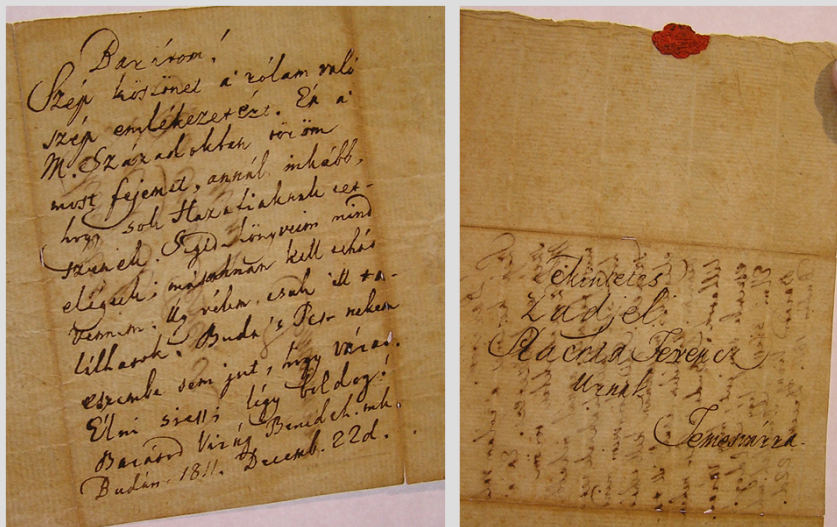 Barátom!
Szép köszönet a' rólam való
szép emlékezetért. Én a'
M. Századokban töröm
most fejemet, annál inkább,
hogy sok Hazafiaknak tet-
szenek. Segedkönyveim mind
elégtek; másokhan kell
vennem. Úgy vélem, csak itt ta-
lálhatok. Buda 's Pest nekem
eszembe sem jut, hogy város.
Élni siess; légy boldog!
Barátod Virág Benedek. mk.
Budán. 1811. Decemb. 22d.
Tekintetes
Zadjeli
Ferencz
Urnak
Temesvárra.